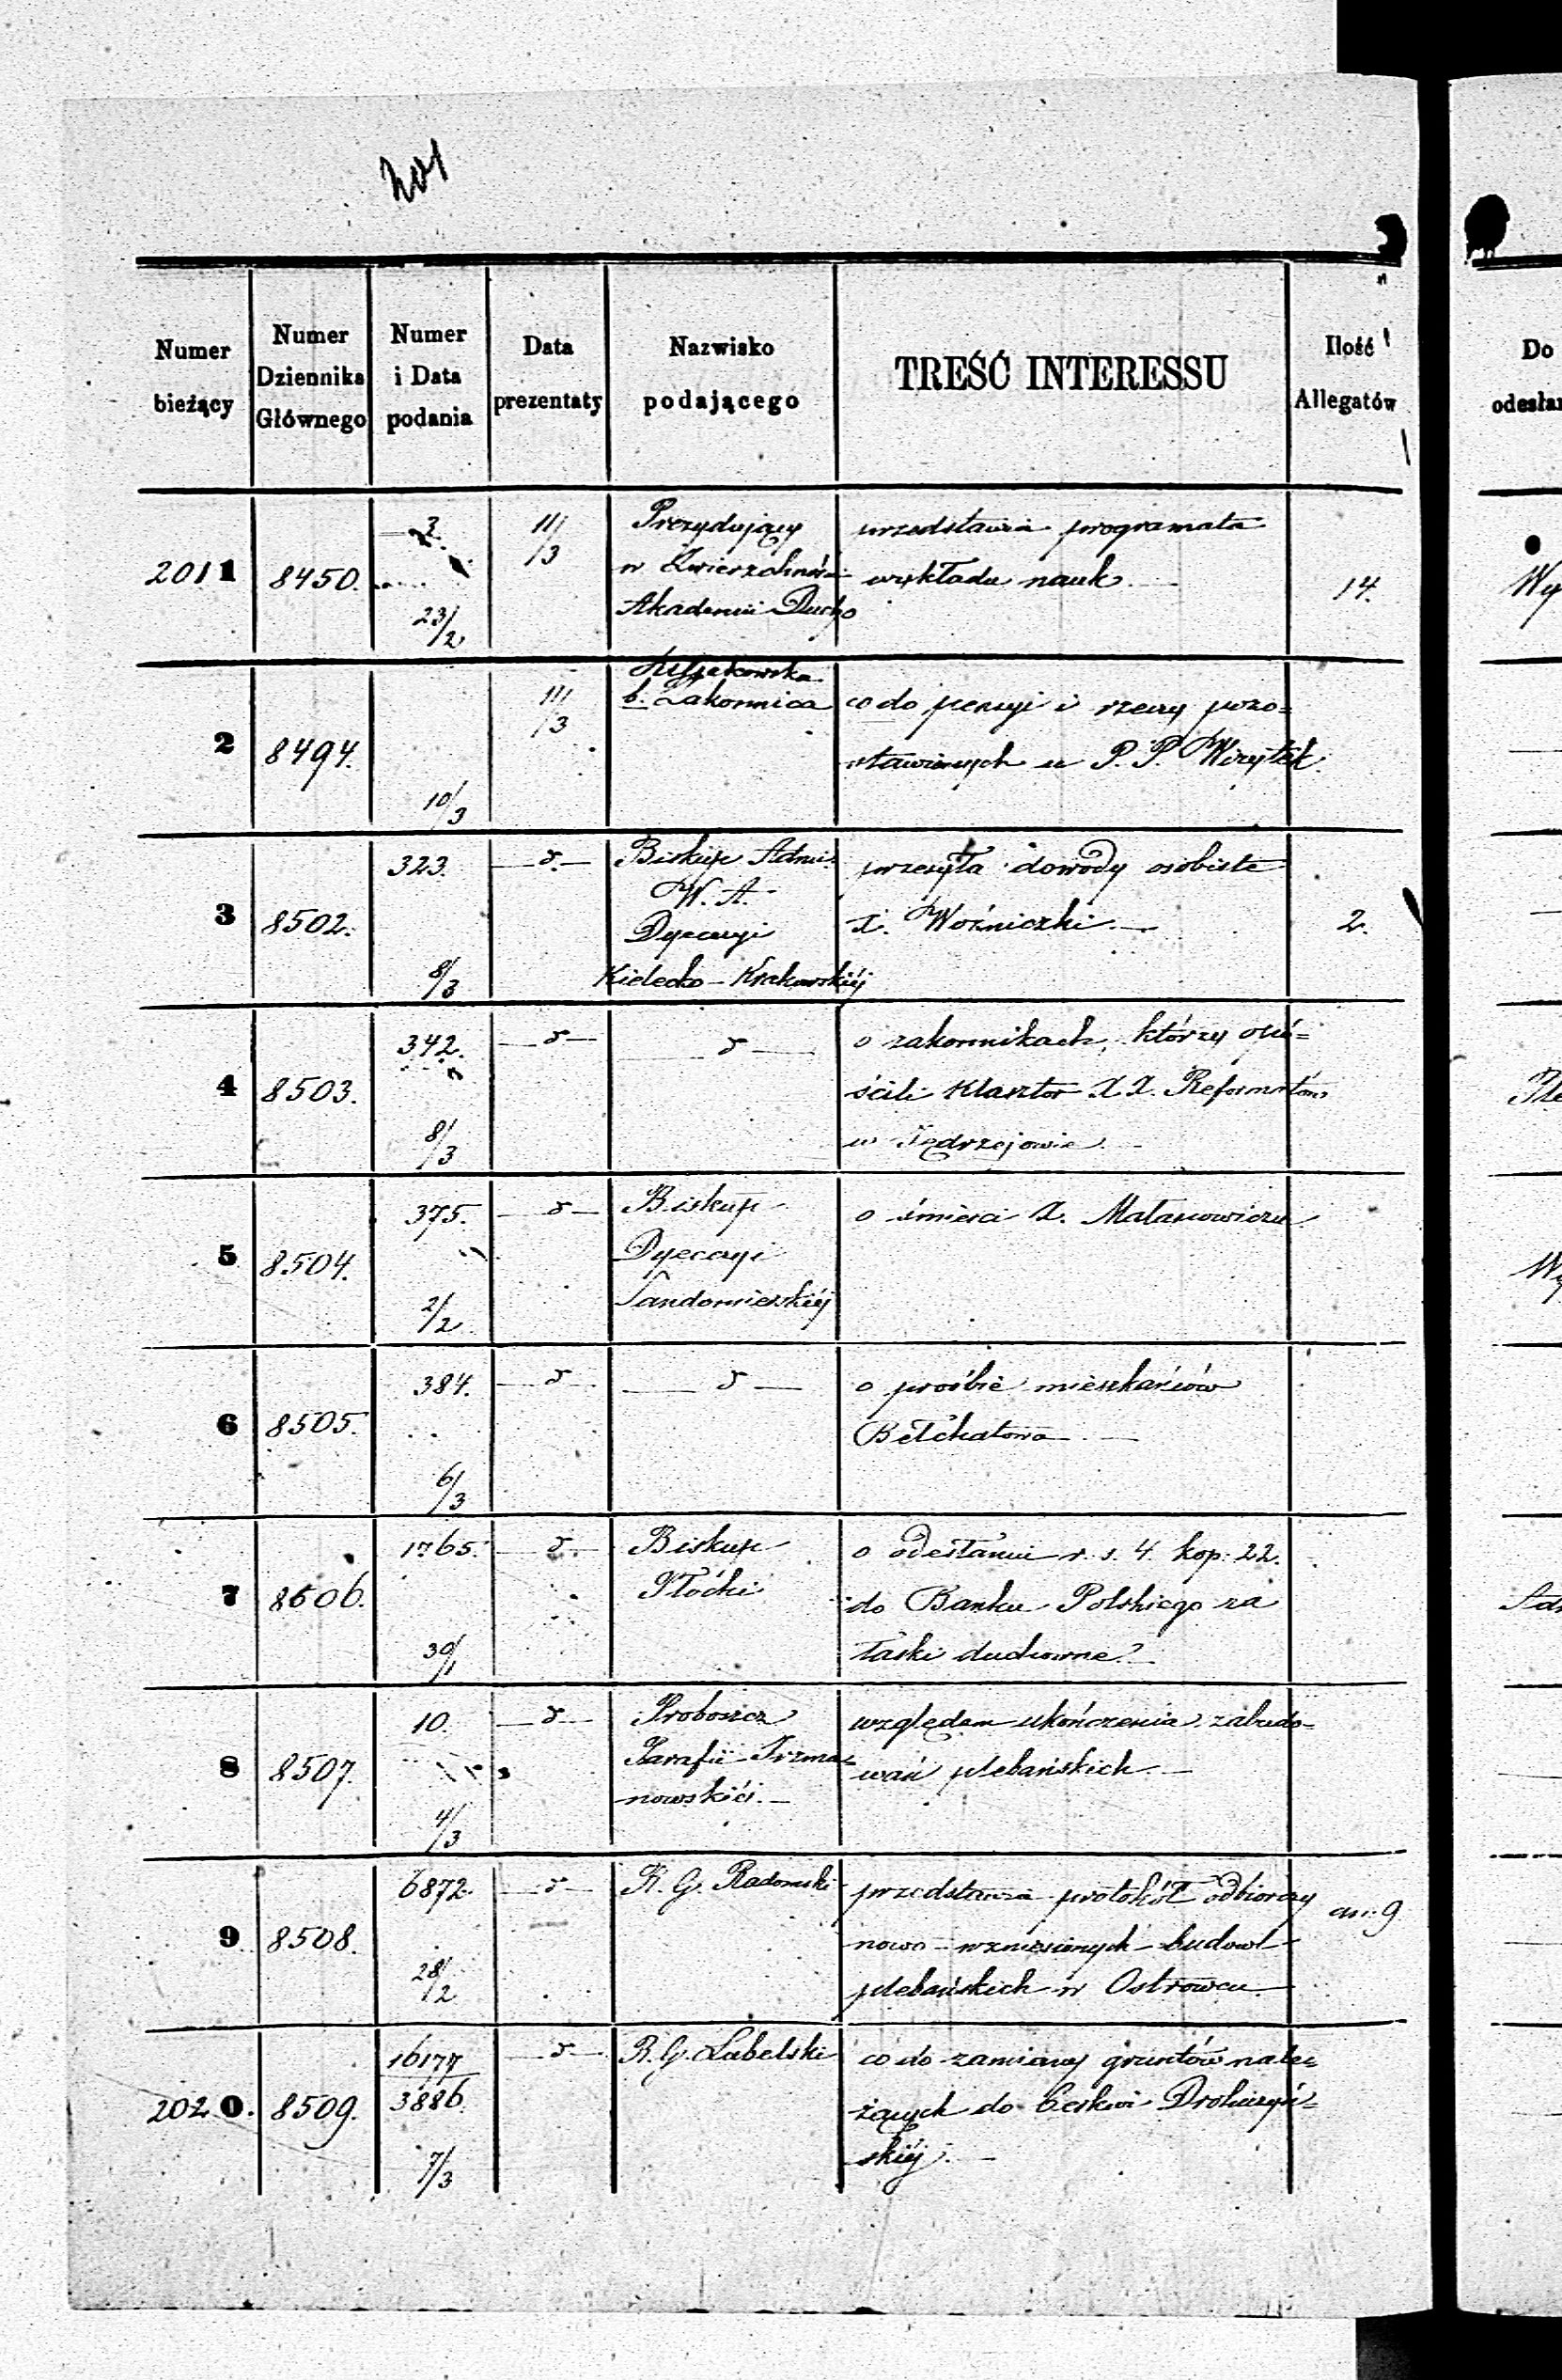 201
Numer bieżący
Numer Dziennika Głównego
Numer i Data podania
Data prezentaty
Nazwisko podającego
TREŚĆ INTERESSU
Ilość Allegatów
Do
2011 8450. 3. 23/2 11/3
Prezydujący
w Zwierzchności
Akademii Ducho
przedstawia programata
wykładu nauk. —
14.
Wy
2 8494. 10/3 11/3
b. Zakonnica
co do pensyi i rzeczy pozo=
stawionych u P. P. Wizytek.
3 8502. 323. 8/3 — d. —
Biskup Admi.
W. A.
Dyecezyi
Kielecko – Krakowskiéj
przesyła dowody osobiste
X. Woźniczki. —
2.
4 8503. 342. 8/3 — d — — d —
o zakonnikach, którzy opu=
ścili Klasztor X. X. Reformatów
w Jędrzejowie. —
5 8504. 375. 2/2 — d —
Biskup
Dyecezyi
Sandomierskiéj
o śmierci X.
6 8505. 384. 6/3 — d — — d —
o prośbie mieszkańców
Bełchatowa —
7 8506. 1765. 30/1 — d. —
Biskup
Płocki
o odesłaniu r. s. 4. kop. 22.
do Banku Polskiego za
łaski duchowne. —
8 8507. 10. 4/3 — d —
Proboszcz
Parafii Irzma=
nowskiéj. —
względem ukończenia zabudo=
wań plebańskich. —
9 8508. 6872. 28/2 — d —
R. G. Radomski
przedstawia protokół odbiorczy
nowo – wzniesionych budowl
plebańskich w Ostrowcu
an: 9
2020. 8509. 16177
3886. 7/3 — d —
R. G. Lubelski
co do zamiany gruntów nale=
żących do Cerkwi Drohiczyń=
skiéj. —